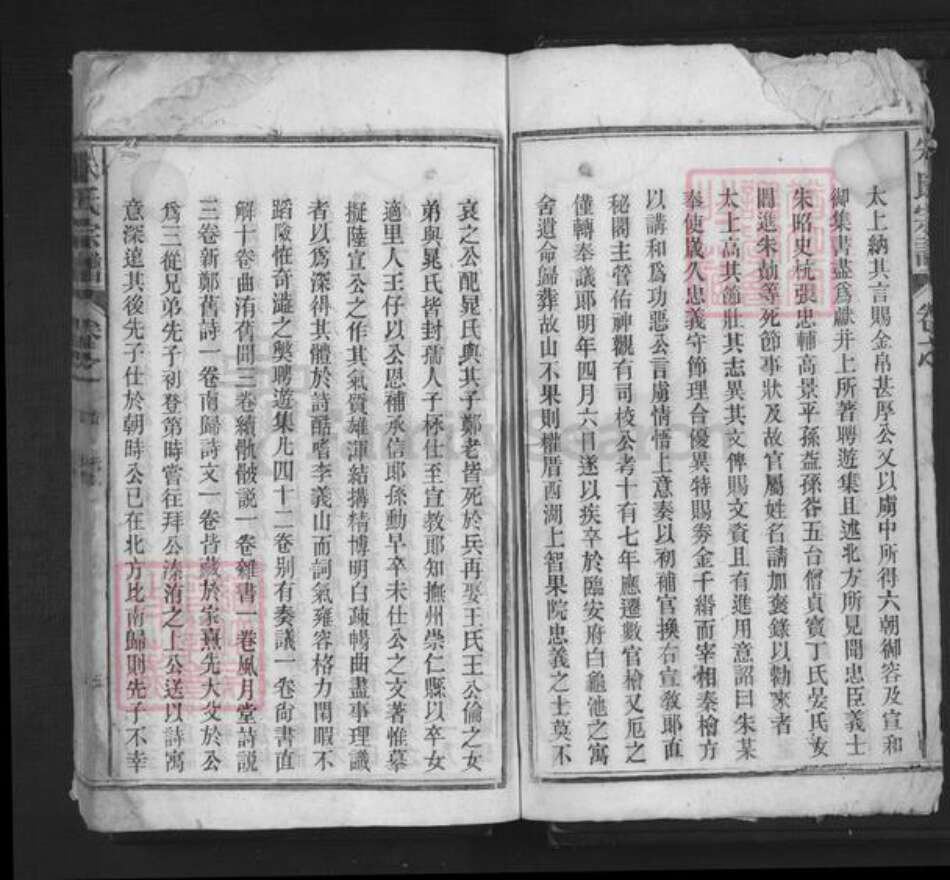 太上納其言賜金帛甚厚公又以虜中所得六朝御容及宣和
御集書盡爲獻并上所著聘遊集且述北方所見聞忠臣義士
朱昭史抗張忠輔高景平孫益孫谷五台僧貞寶丁氏晏氏女
閻進朱勣等死節事狀及故官屬姓名請加褒錄以勸來者
太上高其節壯其志異其文俾賜文資且有進用意詔曰朱某
奉使歲久忠義守節理合優異特賜劵金千緡而宰相秦檜方
以講和爲功惡公言虜情悟上意奏以初補官換右宣敎郎直
秘閣主管佑神觀有司校公考十有七年應遷數官檜又厄之
僅轉奉議郎明年四月六日遂以疾卒於臨安府白龜池之寓
舍遺命歸葬故山不果則權厝西湖上智果院忠義之士莫不
哀之公配晁氏與其子鄭老皆死於兵再娶王氏王公倫之女
弟與晁氏皆封孺人子林仕至宣敎郎知撫州崇仁縣以卒女
適里人王仔以公恩補承信郎孫勳早卒未仕公之文著惟慕
擬陸宣公之作其氣質雄渾結搆精博明白疎暢曲盡事理識
者以爲深得其體於詩酷嗜李義山而詞氣雍容格力閒暇不
蹈險怪奇澁之獘聘遊集凡四十二卷別有奏議一卷尙書直
解十卷曲洧舊聞三卷續骩骳說一卷雜書一卷風月堂詩説
三卷新鄭舊詩一卷南歸詩文一卷皆藏於家熹先大父於公
爲三從兄弟先子初登第時嘗往拜公溱洧之上公送以詩寓
意深遠其後先子仕於朝時公已在北方比南歸則先子不幸
朱氏宗譜